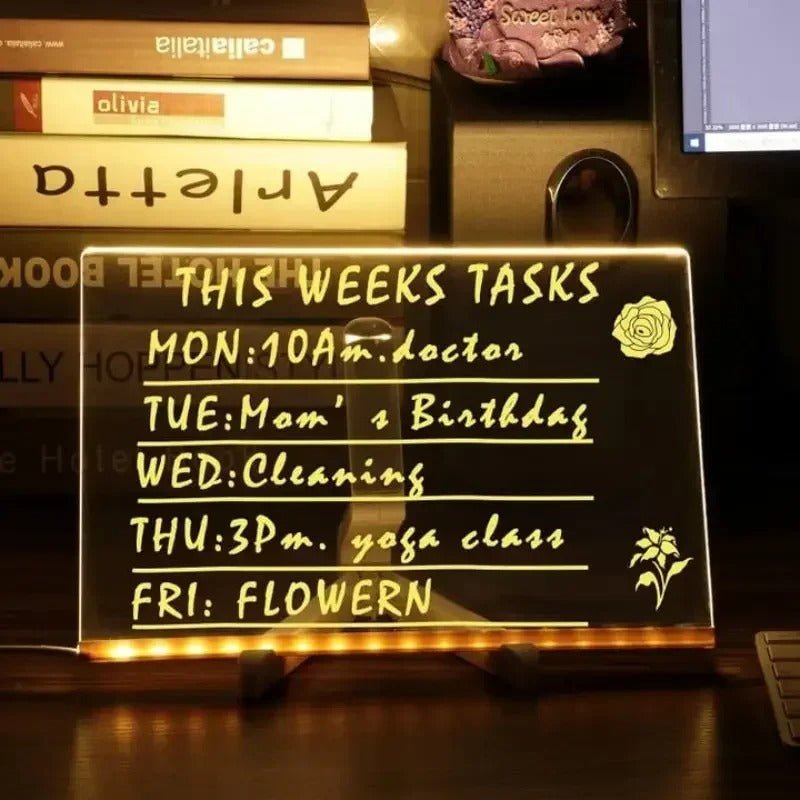 www.caliaitalia.com
caliaitalia
olivia
Arletta
Sweet Love
THE HOTEL BOOK
THIS WEEKS TASKS
MON:10Am.doctor
TUE:Mom's Birthday
WED:Cleaning
THU:3Pm. yoga class
FRI: FLOWERN